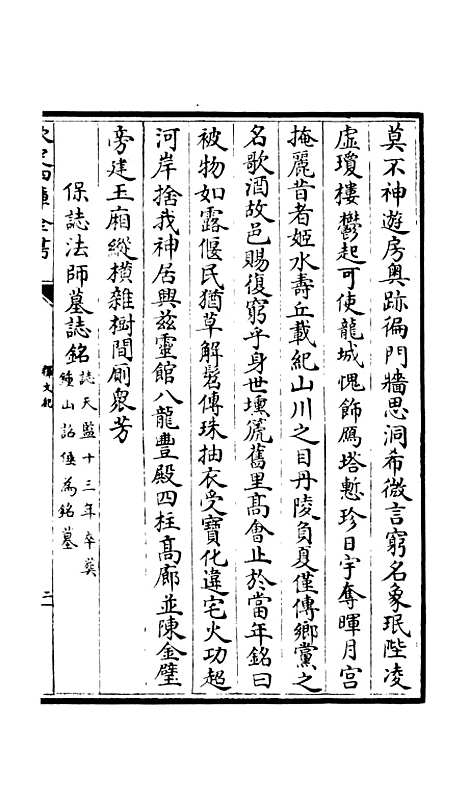 莫不神遊房奧跡徧門牆思洞希微言窮名象珉陛凌
虛瓊樓鬱起可使龍城愧飾鴈塔慙珍日宇奪暉月宮
掩麗昔者姬水壽丘載紀山川之目丹陵負夏僅傳鄉黨之
名歌酒故邑賜復窮乎身世壎箎舊里髙會止於當年銘曰
被物如露偃民猶草解髻傳珠抽衣受寶化違宅火功超
河岸捨我神居興兹靈館八龍豊殿四柱髙廊並陳金壁
旁建玉廂縱橫雜樹間厠衆芳
保誌法師墓誌銘
誌天監十三年卒葬
鍾山詔倕為銘墓
欽定四庫全書
釋文紀
二